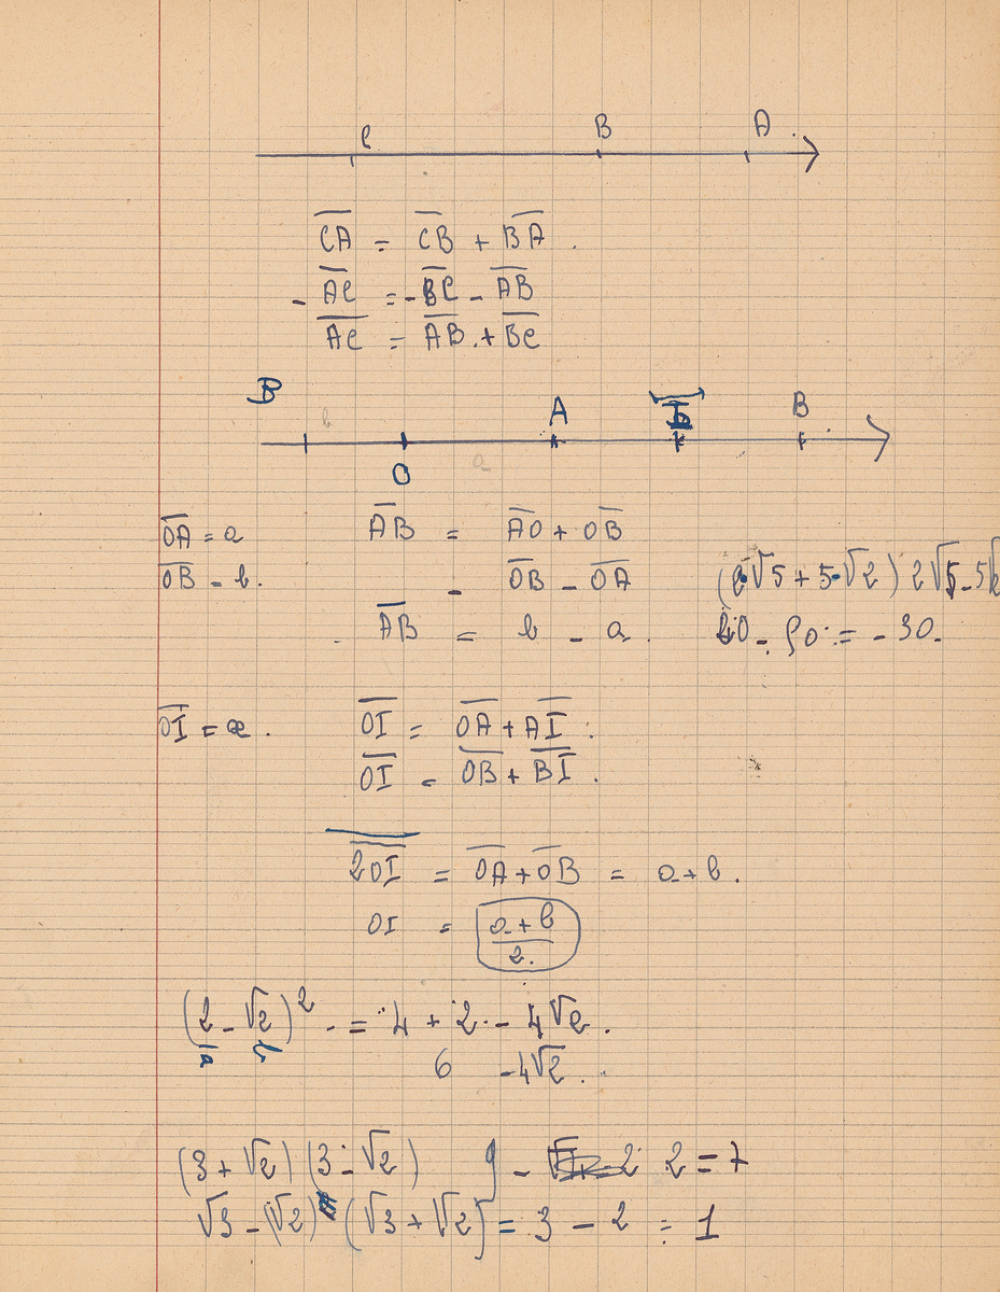 C B A
CA = CB + BA .
- AC = - BC - AB
AC = AB . + BC
B b A I B
O a
OA = a AB = AO + OB
OB = b. = OB - OA (2·√5 + 5·√2) 2√5 - 5√
AB = b - a. 20 - 50 = - 30.
OI = x. OI = OA + AI .
OI = OB + BI .
2OI = OA + OB = a + b .
OI = (a + b)/2.
(2 - √2)² . = 4 + 2 - 4√2 .
a b 6 - 4√2 .
(3 + √2) (3 - √2) 9 - 2 = 7
√3 - (√2) (√3 + √2) = 3 - 2 = 1